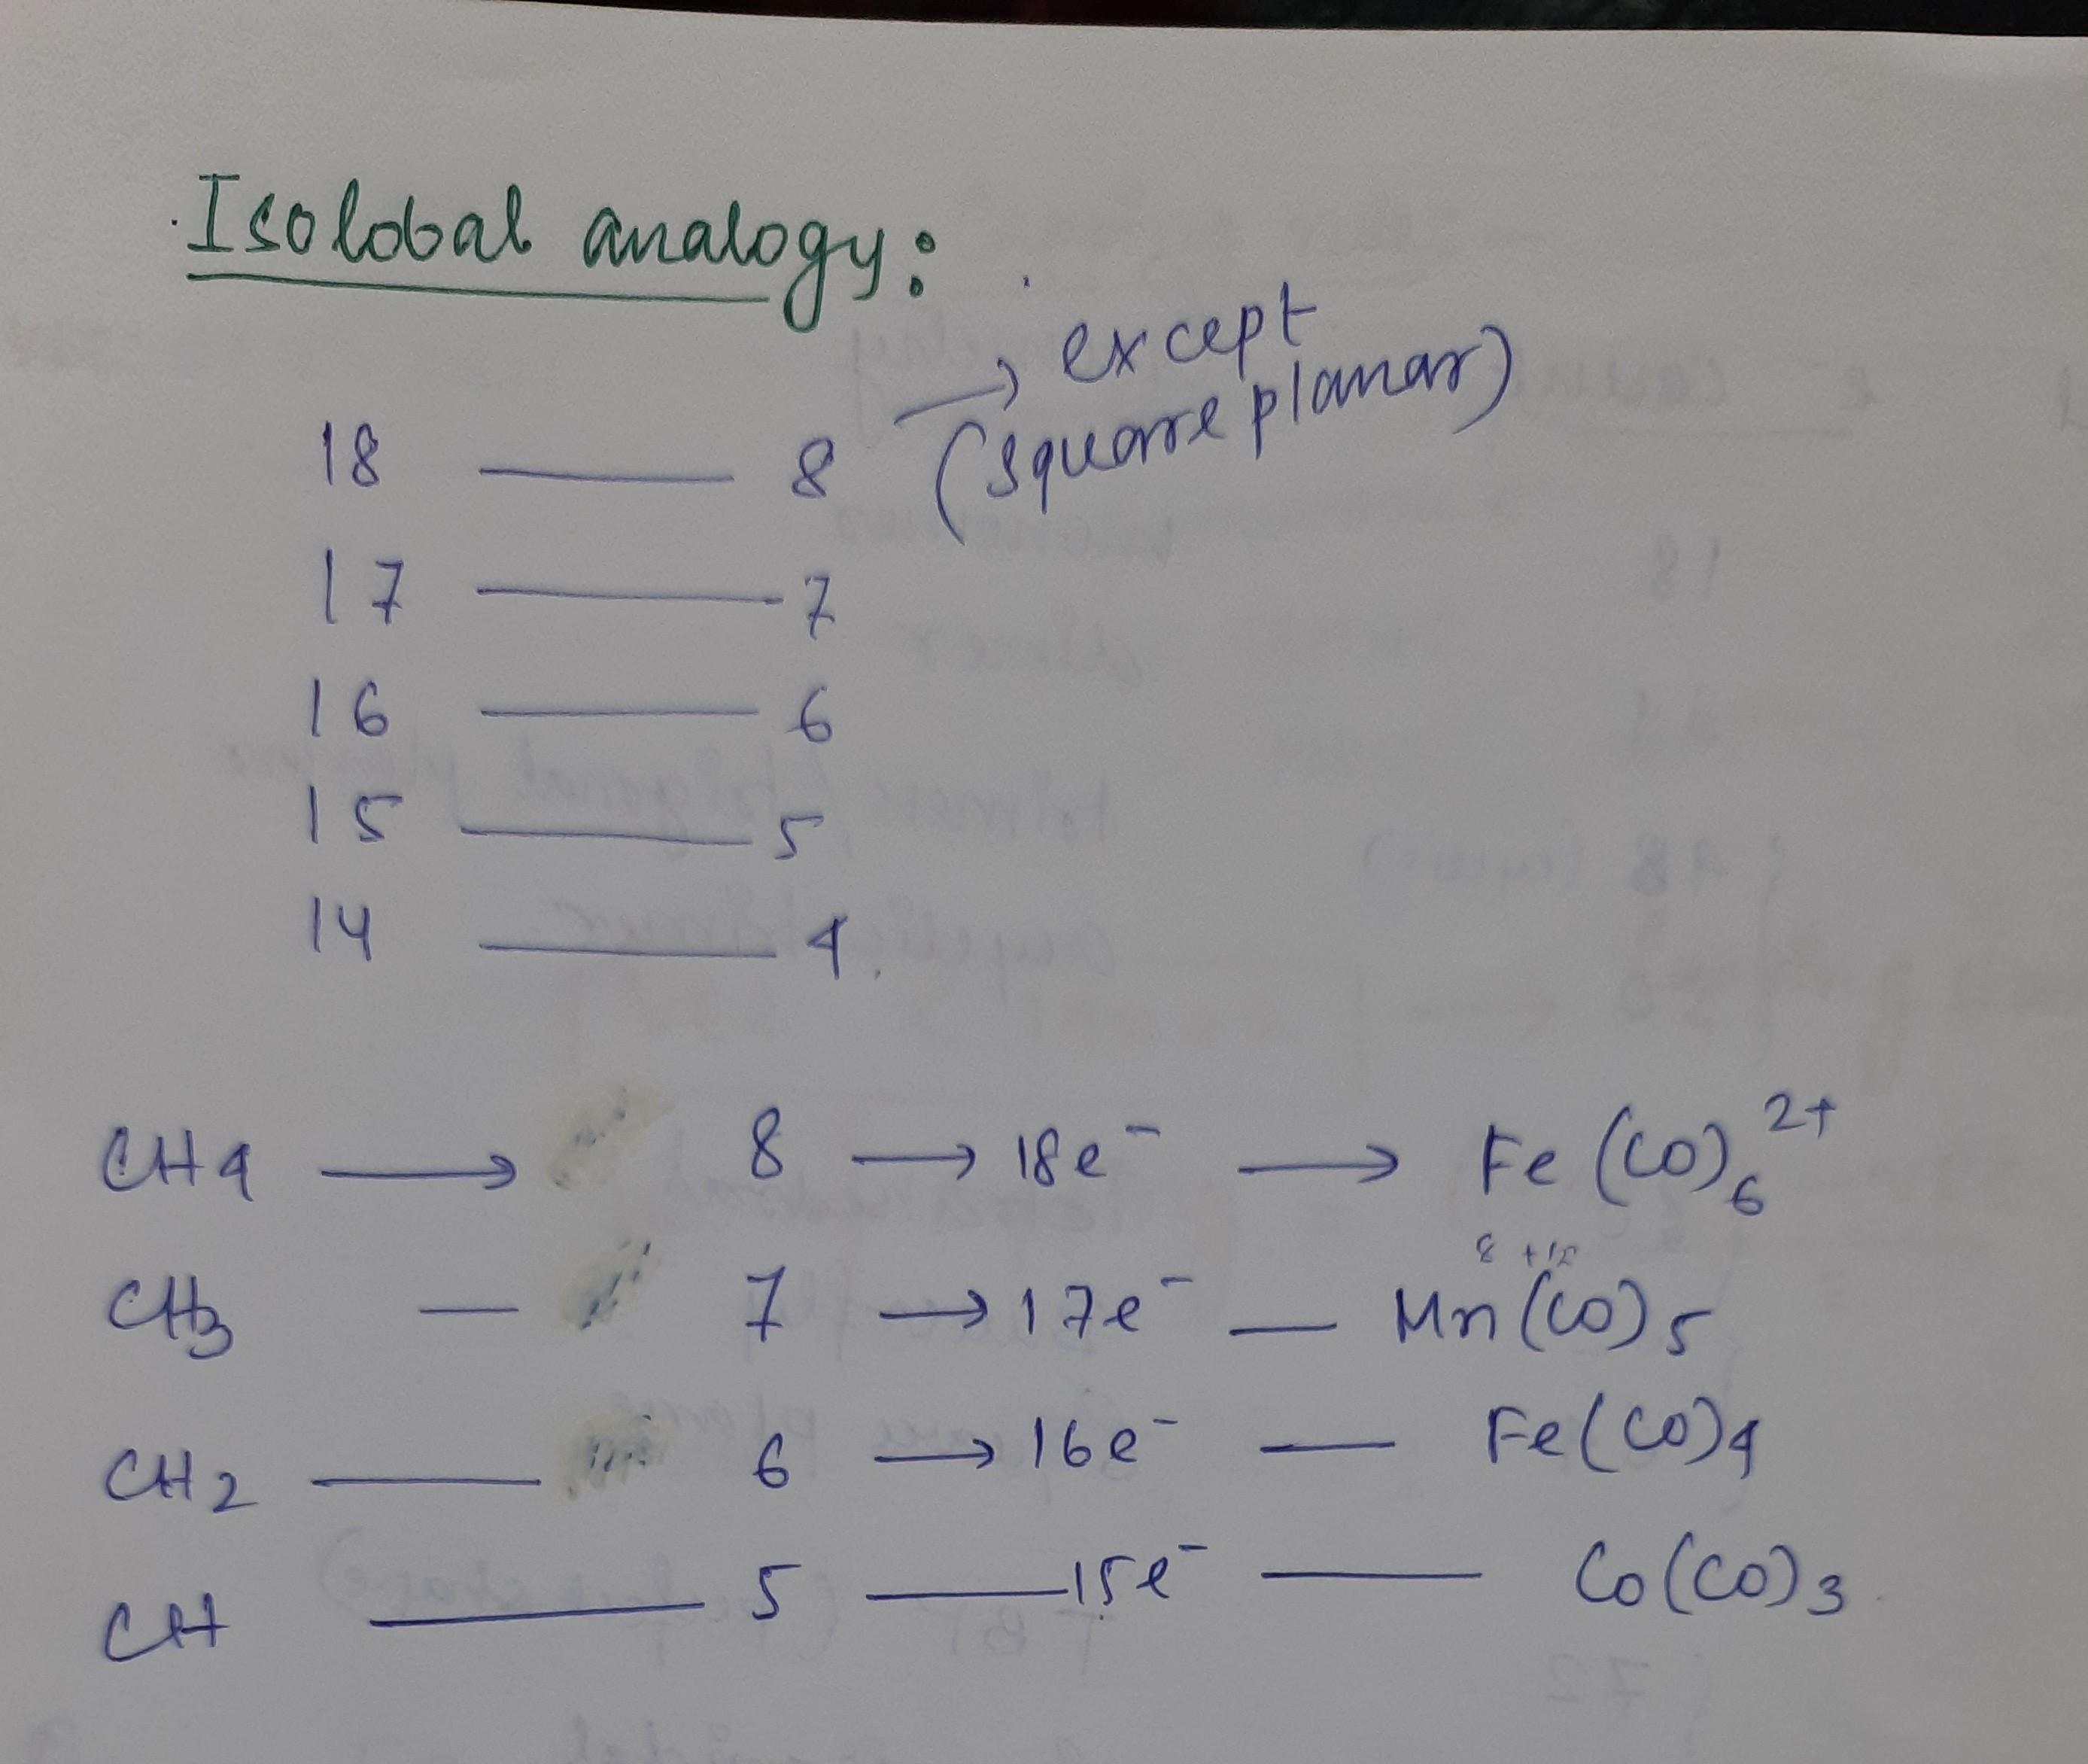 Isolobal analogy:
→ except
(square planar)
18 — 8
17 — 7
16 — 6
15 — 5
14 — 4
CH4 → 8 → 18e⁻ → Fe(CO)₆²⁺
CH3 — 7 → 17e⁻ — Mn(CO)5
CH2 — 6 → 16e⁻ — Fe(CO)4
CH — 5 — 15e⁻ — Co(CO)3